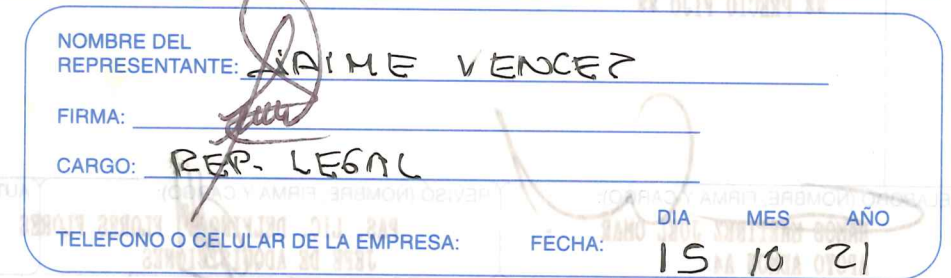 NOMBRE DEL
REPRESENTANTE: JAIME VENCEZ
FIRMA:
CARGO: REP. LEGAL
DIA MES AÑO
TELEFONO O CELULAR DE LA EMPRESA: FECHA: 15 10 21